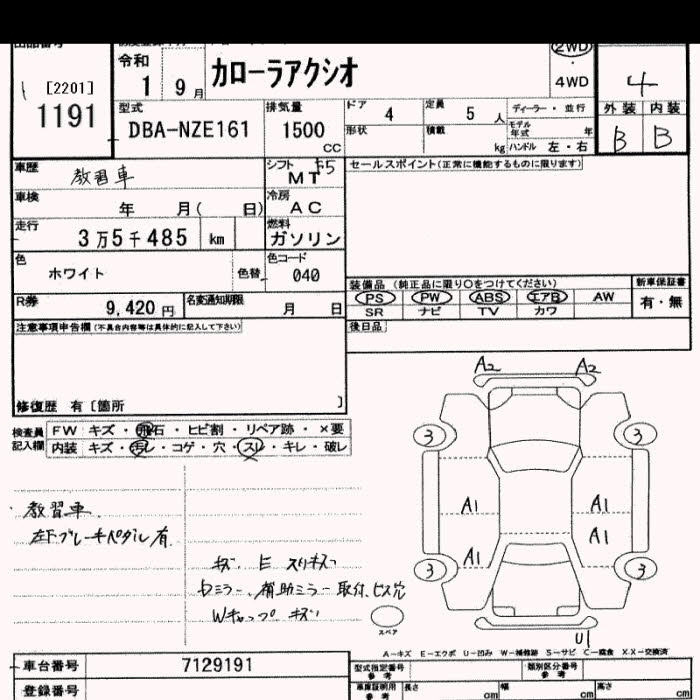 令和
1 9月
カローラアクシオ
2WD
4WD
4
[2201]
1191
型式
DBA-NZE161
排気量
1500
CC
ドア
4
定員
5 人
ディーラー・並行
形状
積載
kg
モデル年式 年
ハンドル 左・右
外装 内装
B B
車歴
教習車
シフト F5
MT
セールスポイント(正常に機能するものに限ります)
車検
年 月( 日)
冷房
AC
走行
3万5千485 km
燃料
ガソリン
色
ホワイト
色替
色コード
040
装備品 (純正品に限り○をつけてください)
新車保証書
PS PW ABS エアB AW
有・無
SR ナビ TV カワ
R券
9,420 円
名変通知期限
月 日
後日品
注意事項申告欄(不具合内容等は具体的に記入して下さい)
修復歴 有〔箇所 〕
検査員記入欄
FW キズ・飛石・ヒビ割・リペア跡・×要
内装 キズ・汚レ・コゲ・穴・スレ・キレ・破レ
A2 A2
3 3
A1 A1
A1
A1
3 3
U1
教習車.
左下ブレーキペダル有.
キズ、E スリキズ
Dミラー、補助ミラー取付、ビス穴
Wキャップ キズ
スペア
A-キズ E-エクボ U-凹み W-補修跡 S-サビ C-腐食 X.X-交換済
車台番号
7129191
型式指定番号
参考
類別区分番号
参考
登録番号
車庫証明用
参考
長さ
cm
幅
cm
高さ
cm